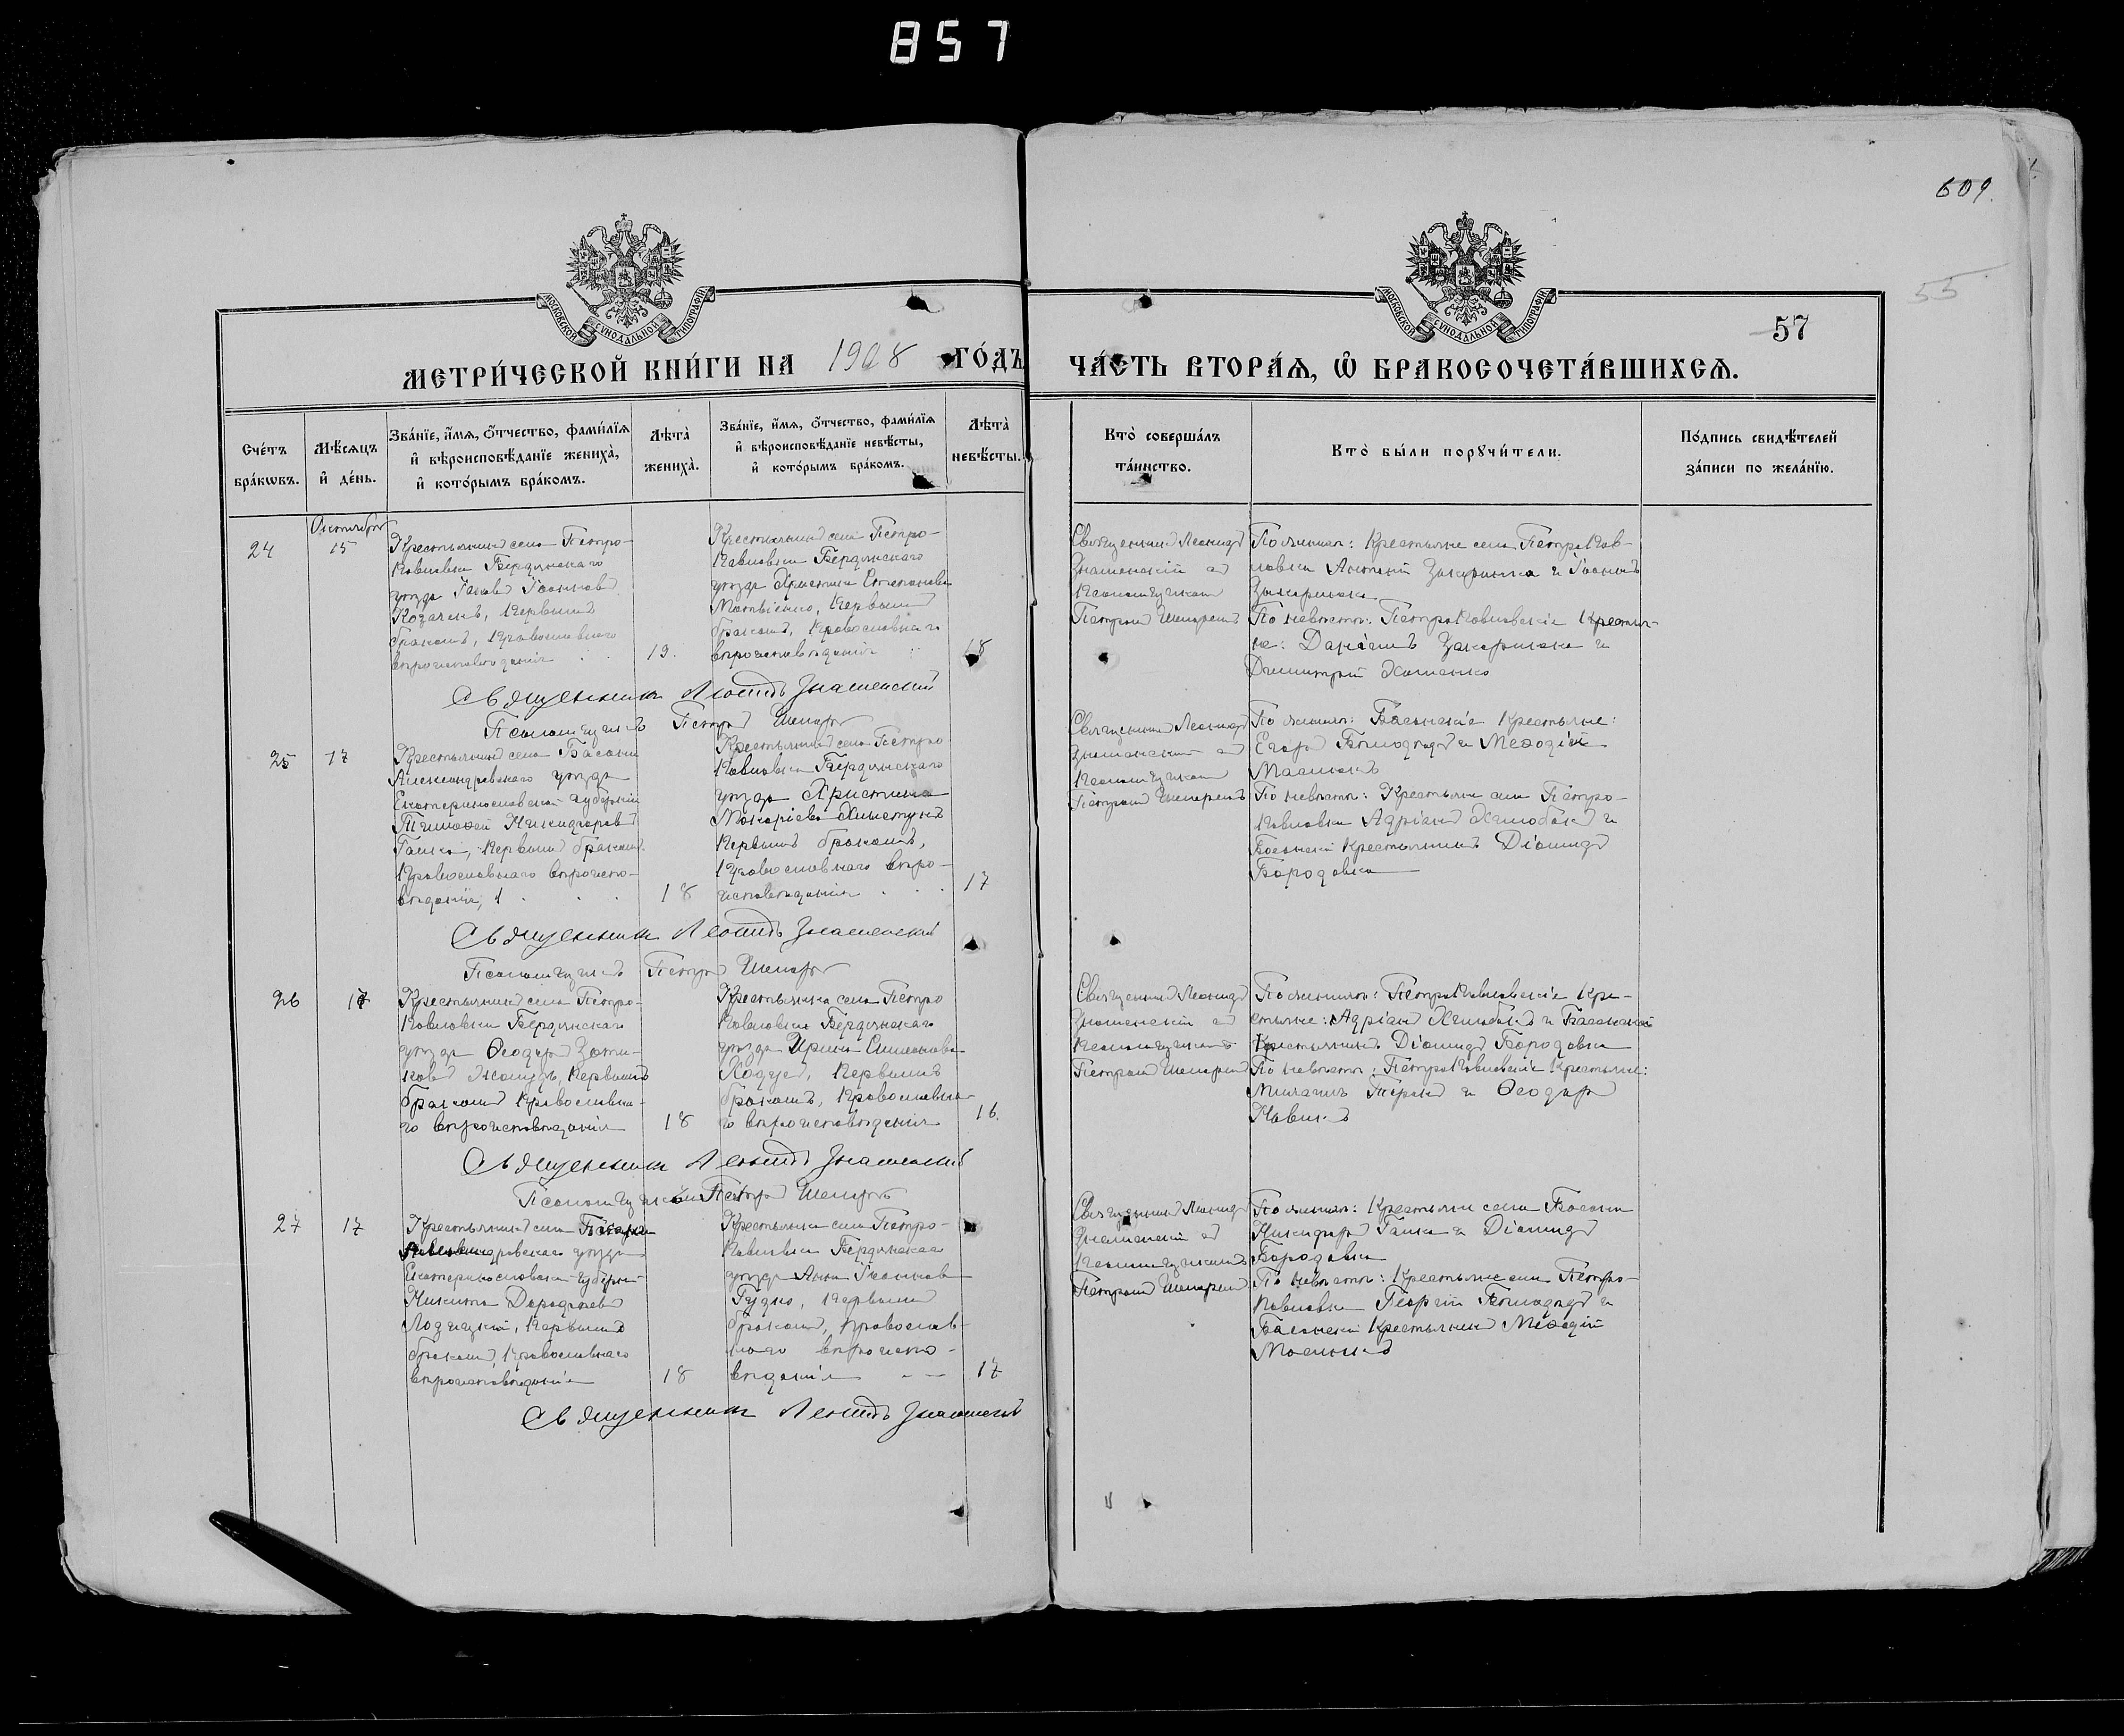 857
609.
55
57
МОСКОВСКОЙ СѴНОДАЛЬНОЙ ТИПОГРАФІИ
МОСКОВСКОЙ СѴНОДАЛЬНОЙ ТИПОГРАФІИ
МЕТРИ́ЧЕСКОЙ КНИ́ГИ НА 1908 ГО́ДЪ
ЧА́СТЬ ВТОРА́Ѧ, Ѡ҆ БРАКОСОЧЕТА́ВШИХСѦ.
Сче́тъ бра́кѡвъ.
Мѣ́сѧцъ и҆ де́нь.
Зва́нїе, и҆́мѧ, ѻ҆́тчество, фами́лїѧ
и҆ вѣроисповѣ́данїе жениха̀,
и҆ кото́рымъ бра́комъ.
Лѣта̀ жениха̀.
Зва́нїе, и҆́мѧ, ѻ҆́тчество, фами́лїѧ
и҆ вѣроисповѣ́данїе невѣ́сты,
и҆ кото́рымъ бра́комъ.
Лѣта̀ невѣ́сты.
Кто̀ соверша́лъ та́инство.
Кто̀ бы́ли порꙋчи́тели.
По́дпись свидѣ́телей
за́писи по жела́нїю.
Октября
24
15
Крестьянинъ села Петро-
павловки Бердянскаго
уѣзда Іаковъ Іоанновъ
Козачекъ, первымъ
бракомъ, православнаго
вѣроисповѣданія
19.
Крестьянка села Петро-
павловки Бердянскаго
уѣзда Христина Стефанова
Матвіенко, первымъ
бракомъ, православнаго
вѣроисповѣданія
18
Священникъ Леонидъ
Знаменскій съ
псаломщикомъ
Петромъ
По женихѣ: Крестьяне села Петропав-
ловки Антоній и Іоаннъ
По невѣстѣ: Петропавловскіе крестья-
не: Даніилъ и
Димитрій Хоменко
Священникъ Леонидъ Знаменскій
Псаломщикъ Петръ
25
17
Крестьянинъ села Басани
Александровскаго уѣзда
Екатеринославской губерніи
Тимоѳей Никифоровъ
Гашка, первымъ бракомъ
православнаго вѣроиспо-
вѣданія,
18
Крестьянка села Петро
павловки Бердянскаго
уѣзда Христина
Макаріева
первымъ бракомъ,
православнаго вѣро-
исповѣданія
17
Священникъ Леонидъ
Знаменскій съ
псаломщикомъ
Петромъ
По женихѣ: Басанскіе крестьяне:
Егоръ и Меѳодій
Масликъ
По невѣстѣ: Крестьяне села Петро-
павловки Адріанъ и
Басанскій крестьянинъ Діомидъ
Бородавка
Священникъ Леонидъ Знаменскій
Псаломщикъ Петръ
26
17
Крестьянинъ села Петро-
павловки Бердянскаго
уѣзда Ѳеодоръ
первымъ
бракомъ православна-
го вѣроисповѣданія
18
Крестьянка села Петро
павловки Бердянскаго
уѣзда Ирина Симеонова
первымъ
бракомъ, православна-
го вѣроисповѣданія
16.
Священникъ Леонидъ
Знаменскій съ
псаломщикомъ
Петромъ
По женихѣ: Петропавловскіе кре-
стьяне: Адріанъ и Басанскій
крестьянинъ Діомидъ Бородавка
По невѣстѣ: Петропавловскіе крестьяне:
Михаилъ и Ѳеодоръ
Священникъ Леонидъ Знаменскій
Псаломщикъ Петръ
27
17
Крестьянинъ села Басани
Александровскаго уѣзда
Екатеринославской губерніи
Никита Дороѳеевъ
первымъ
бракомъ, православнаго
вѣроисповѣданія
18
Крестьянка села Петро-
павловки Бердянскаго
уѣзда Анна Іоаннова
Гудко, первымъ
бракомъ, православ-
наго вѣроиспо-
вѣданія
17
Священникъ Леонидъ
Знаменскій съ
псаломщикомъ
Петромъ
По женихѣ: Крестьяне села Басани
Никифоръ Гашка и Діомидъ
Бородавка
По невѣстѣ: Крестьяне села Петро-
павловки Георгій и
Басанскій крестьянинъ Меѳодій
Масликъ
Священникъ Леонидъ Знаменскій